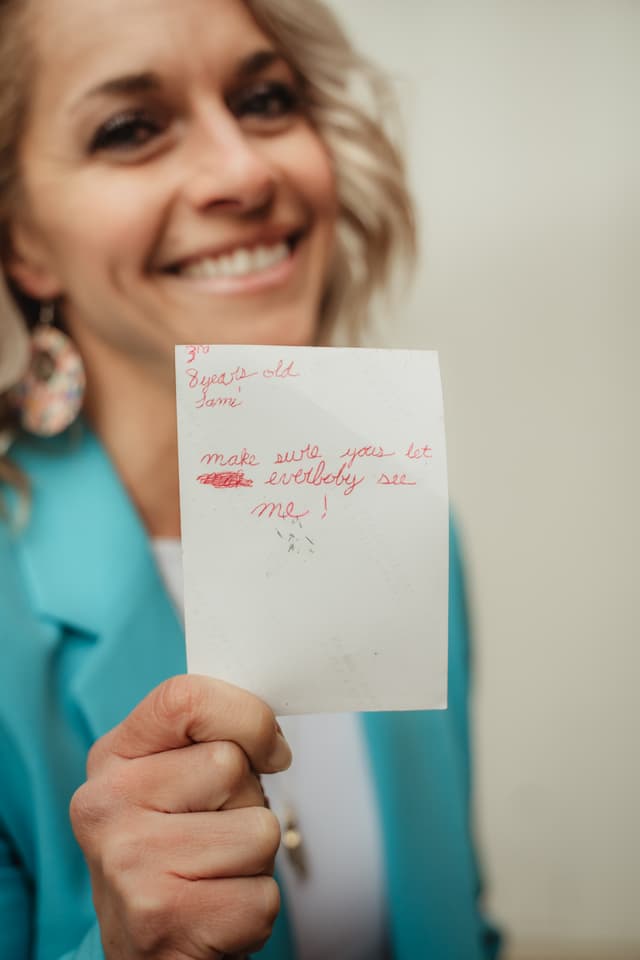 3rd
8 years old
Jami
make sure yous let
everboby see
me!